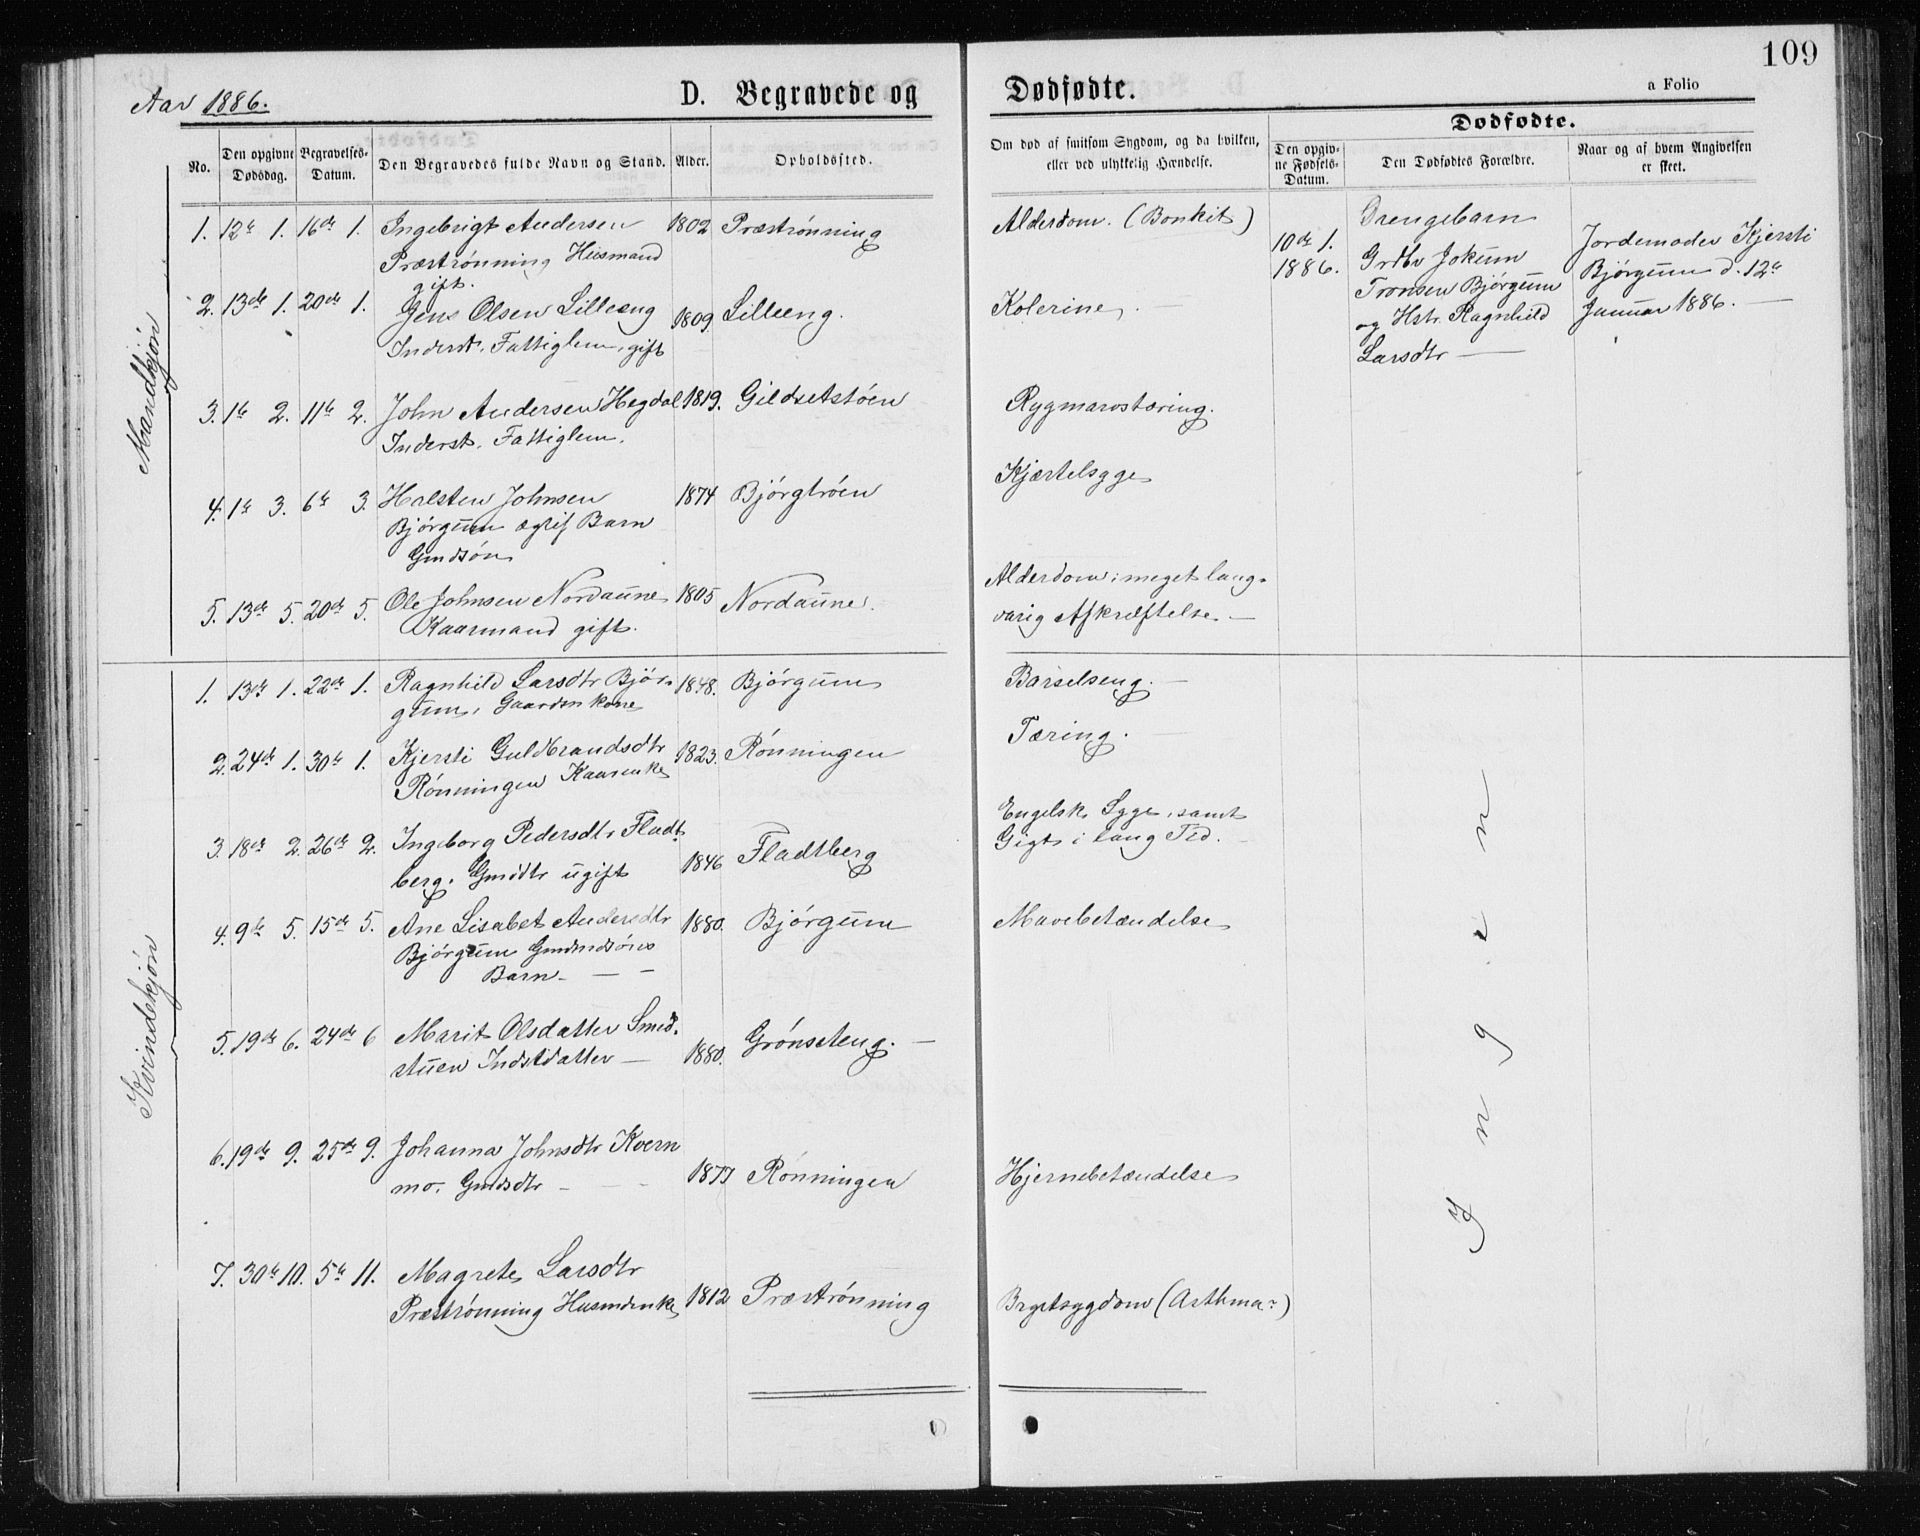 109
Aar 1886.
D. Begravede og Dødfødte.
a Folio
No.
Den opgivne Dødsdag.
Begravelses-Datum.
Den Begravedes fulde Navn og Stand.
Alder.
Opholdssted.
Om død af smitsom Sygdom, og da hvilken,
eller ved ulykkelig Hændelse.
Dødfødte.
Den opgiv-
ne Fødsels-
Datum.
Den Dødfødtes Forældre.
Naar og af hvem Angivelsen
er skeet.
Mandkjøn
1. 12te 1. 16de 1. Ingebrigt Andersen 1802 Præstrønning Alderdom. (Bonkit)
Præstrønning Huusmand
gift.
2. 13de 1. 20de 1. Jens Olsen Lilleeng 1809 Lilleeng. Kolerine.
Inderst. Fattiglem. gift
3. 1te 2. 11te 2. John Andersen Hegdal 1819. Gildsetstøen Rygmarvstæring.
Inderst. Fattiglem.
4. 1te 3. 6te 3. Halsten Johnsen 1874 Bjørgtrøen Kjærtelsyge
Bjørgum ægtef Barn
Gmdsøn
5. 13de 5. 20de 5. Ole Johnsen Nordaune 1805 Nordaune. Alderdom; meget lang-
Kaarmand gift. varig Afkræftelse —
10de 1.
1886.
Drengebarn
Grdbr Jokum
Tronsen Bjørgum
og Hstr. Ragnhild
Larsdtr —
Jordemoder Kjersti
Bjørgum d. 12te
Januar 1886. —
Kvindekjøn
1. 13de 1. 22de 1. Ragnhild Larsdtr Bjør- 1848. Bjørgum Barselseng. —
gum, Gaardmkone
2. 24de 1. 30te 1. Kjersti Guldbrandsdtr 1823. Rønningen Tæring. —
Rønningen Kaarenke
3. 18de 2. 26de 2. Ingeborg Pedersdtr Fladt- 1846 Fladtberg Engelsk Syge, samt
berg. Gmdtr ugift Gigt i lang Tid. —
4. 9de 5. 15de 5. Ane Lisabet Andersdtr 1880. Bjørgum Mavebetændelse
Bjørgum Gmdsøns
Barn — —
5. 19de 6. 24de 6 Marit Olsdatter Smid- 1880. Grønseteng. —
stuen Indstdatter —
6. 19de 9. 25de 9. Johanna Johnsdtr Kvern 1877 Rønningen Hjernebetændelse
mo. Gmdsdtr — — —
7. 30te 10. 5te 11. Magrete Larsdtr 1812 Præstrønning Brystsygdom (Asthma?)
Præstrønning Husmdenke
Ingen